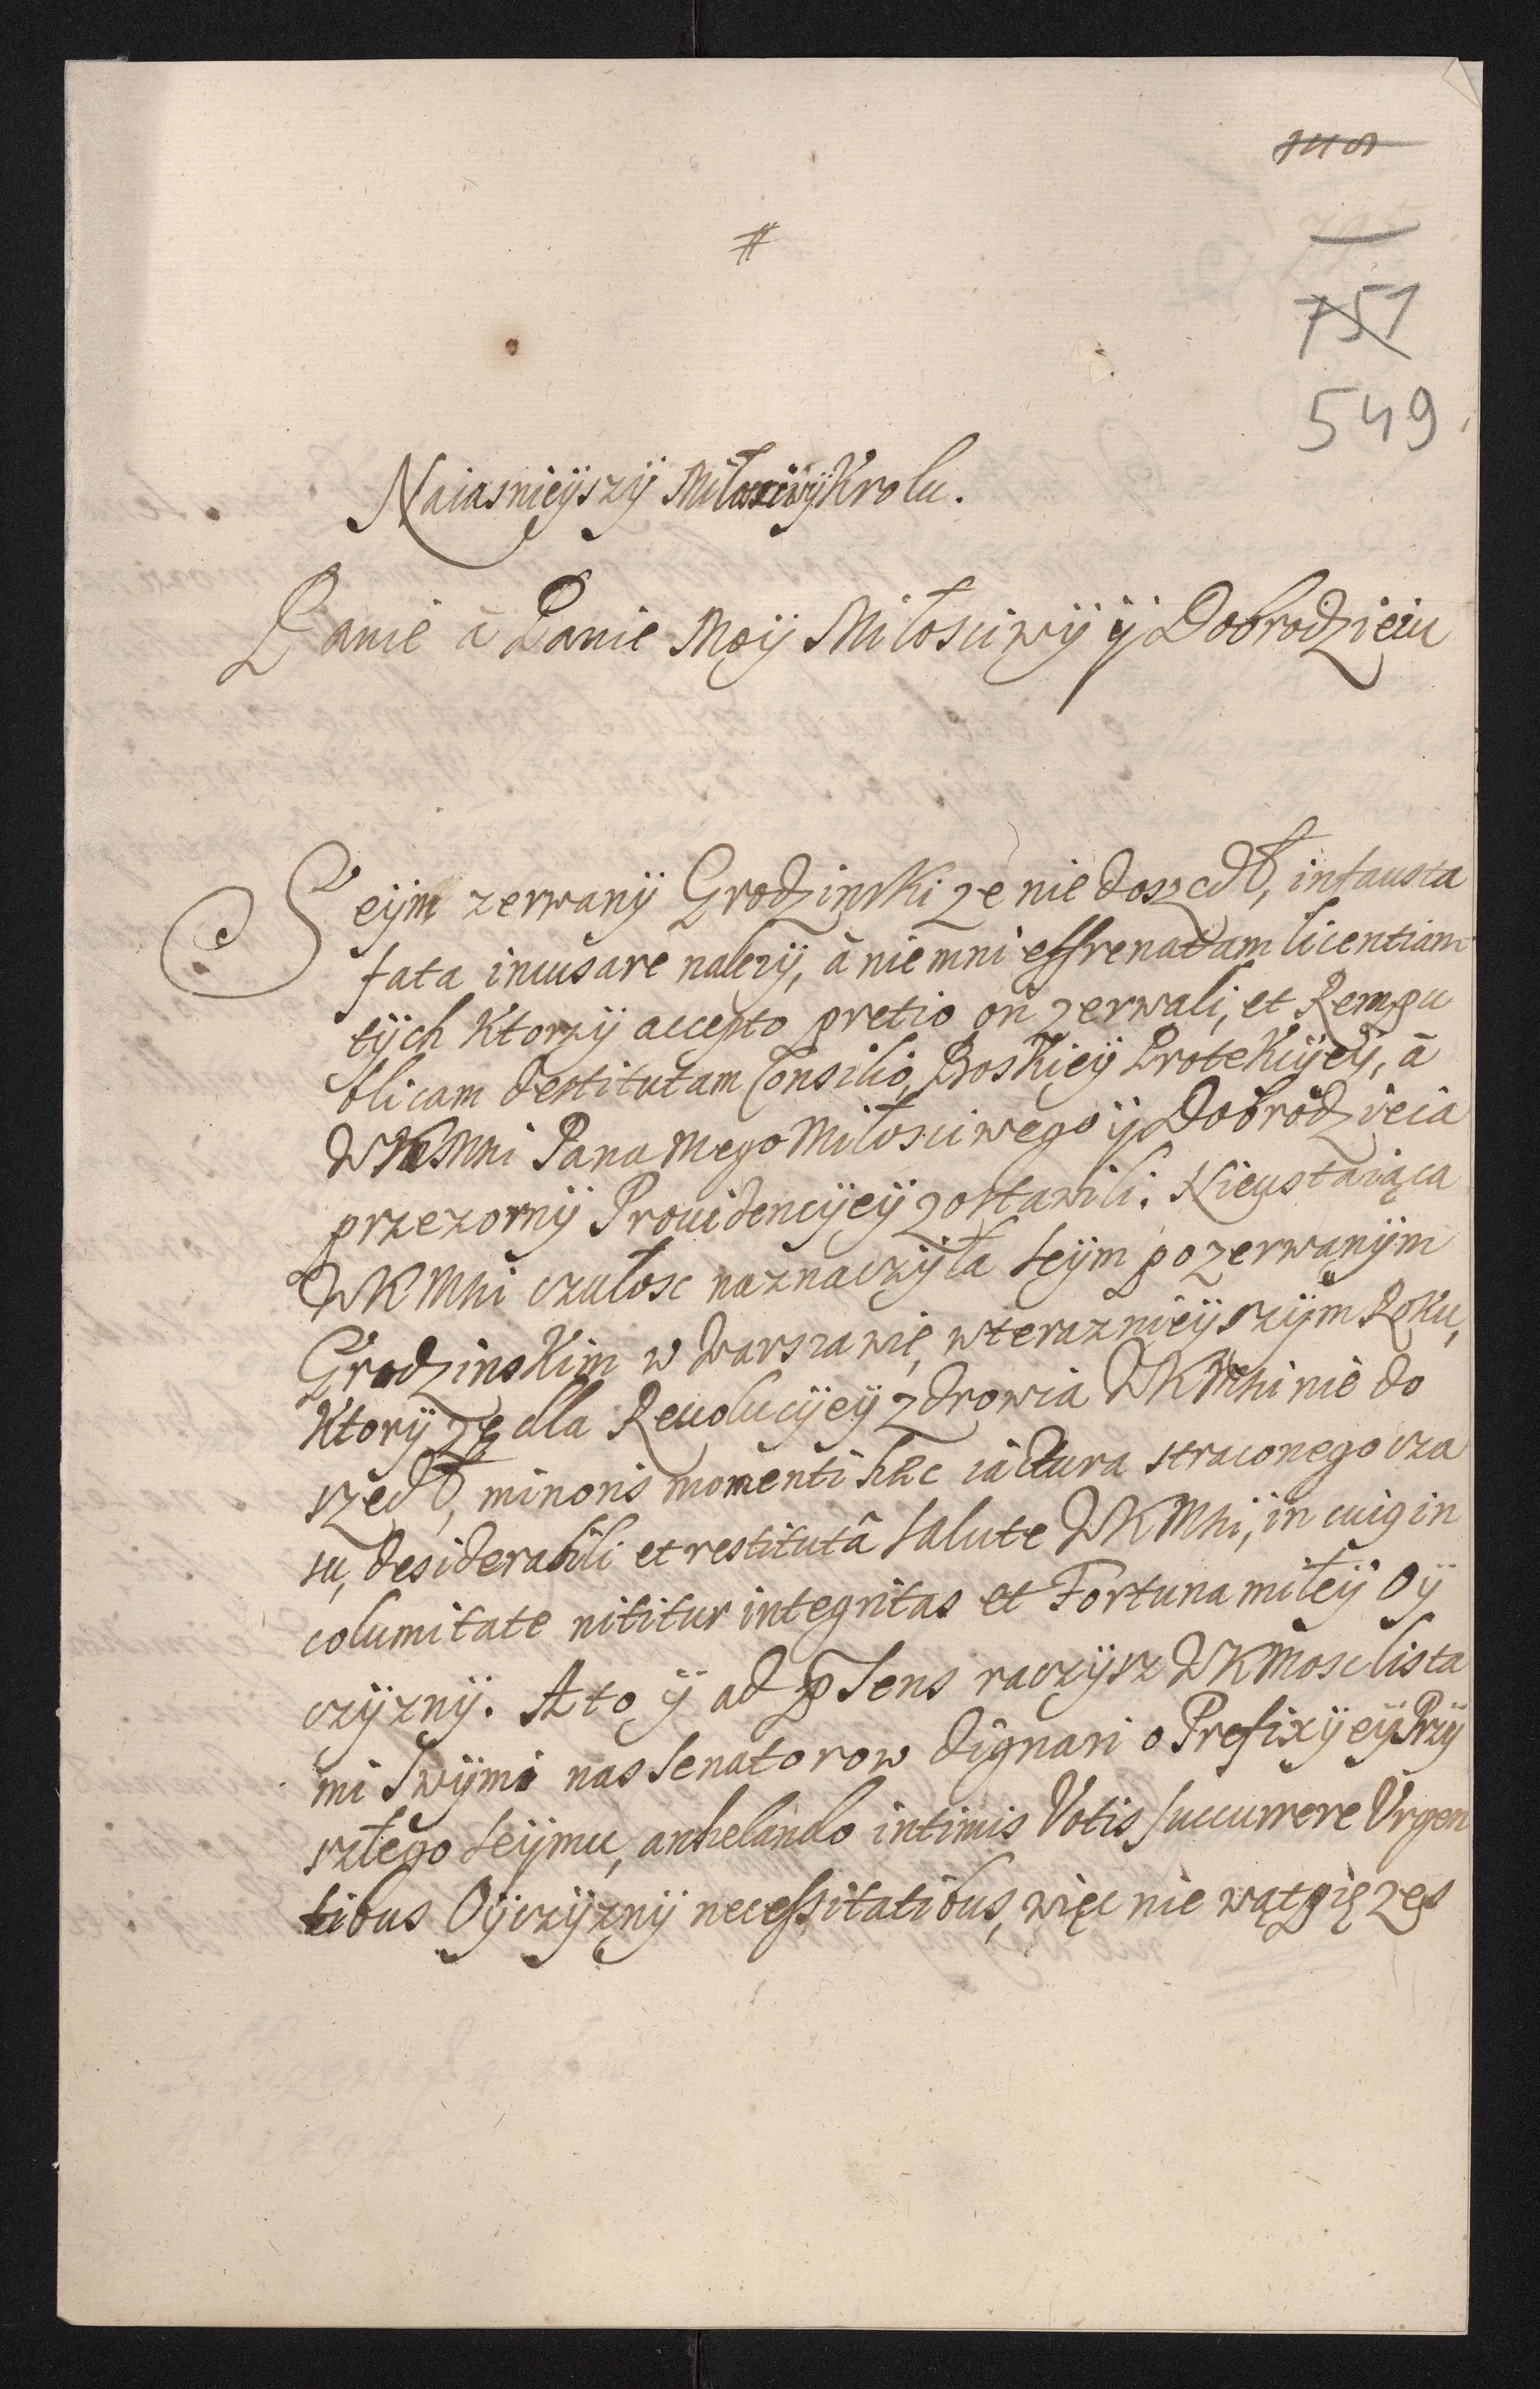 #
751
549
Naiasnieÿszÿ Miłosciwÿ Krolu.
Panie à Panie Moÿ Miłosciwÿ ÿ Dobrodzieiu
Seÿm zerwanÿ Grodzinski ze nie doszedł, infausta
fata incusare nalezÿ, à nie mni effrenatam licentiam
tÿch Ktorzÿ accepto pretio on zerwali, et Rempu
blicam destitutam Consilio, Boskieÿ Protekcÿeÿ, à
WKMni Pana Mego Miłosciwego ÿ Dobrodzieia
przezornÿ Prouidencÿeÿ zostawili. Nieustaiąca
WKMni czułosc naznaczÿła Seÿm po zerwanÿm
Grodzinskim w Warszawie, w teraznieÿszÿm Roku,
Ktorÿ ze dla Reuolucÿeÿ zdrowia WKMni nie do
szedł, minoris momenti hæc iactura straconego cza
su, desiderabili et restitutâ salute WKMni, in cuius in
columitate nititur integritas et Fortuna miłeÿ Oÿ
czÿznÿ. A to ÿ ad præsens raczÿsz WKMosc lista
mi Swÿmi nas Senatorow dignari o Prefixÿeÿ Przÿ
szłego Seÿmu, anhelando intimis Votis succurrere Urgen
tibus Oÿczÿznÿ necessitatibus, więc nie wątpię zes